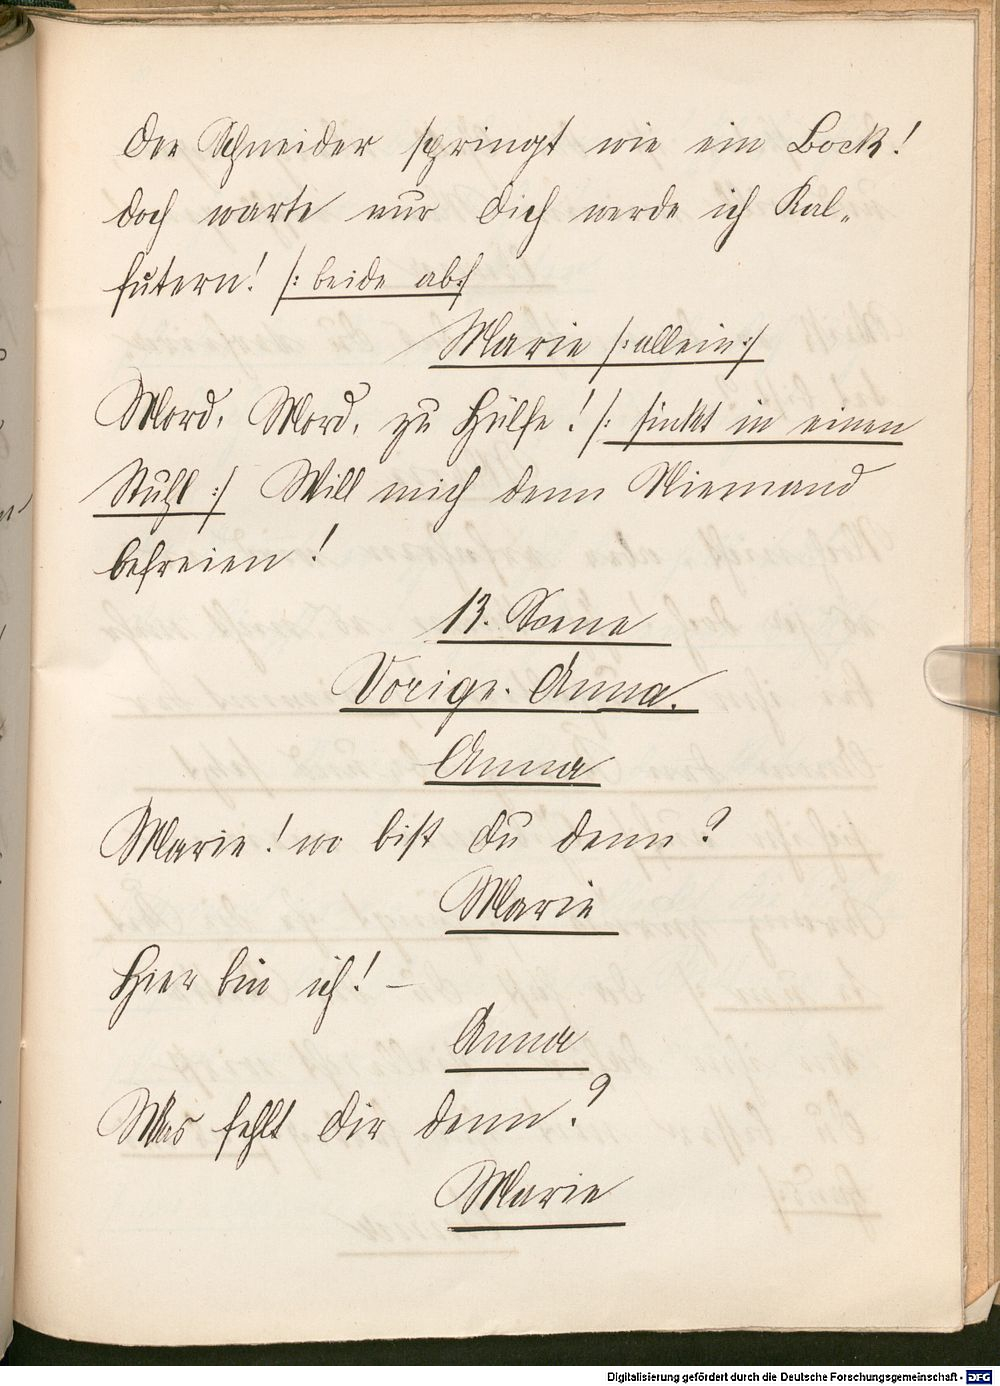 Der Schneider springt wie ein Bock!
doch warte nur Dich werde ich Kal„
futern! /: beide ab :/
Marie /: allein :/
Mord, Mord, zu Hülfe! /: sinkt in einen
Stuhl :/ Will mich denn Niemand
befreien!
13. Scene
Vorige. Anna.
Anna
Marie! wo bist Du denn?
Marie
Hier bin ich! –
Anna
Was fehlt Dir denn?
Marie
Digitalisierung gefördert durch die Deutsche Forschungsgemeinschaft - DFG